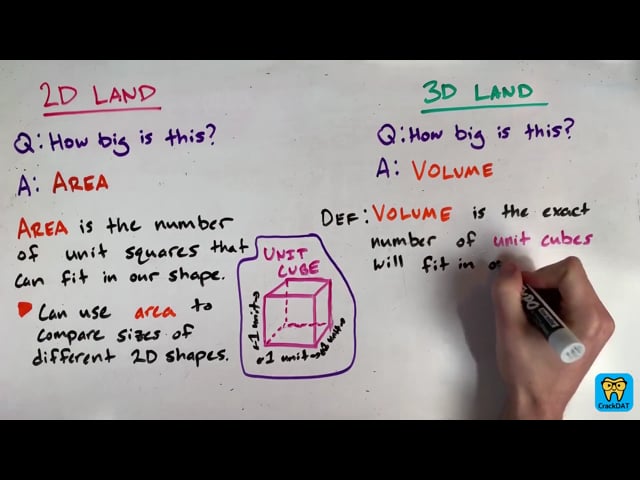 2D LAND
Q: How big is this?
A: AREA
AREA is the number
of unit squares that
can fit in our shape.
Can use area to
compare sizes of
different 2D shapes.
UNIT
CUBE
1 unit
1 unit
unit
3D LAND
Q: How big is this?
A: VOLUME
DEF: VOLUME is the exact
number of unit cubes
will fit in
CrackDAT